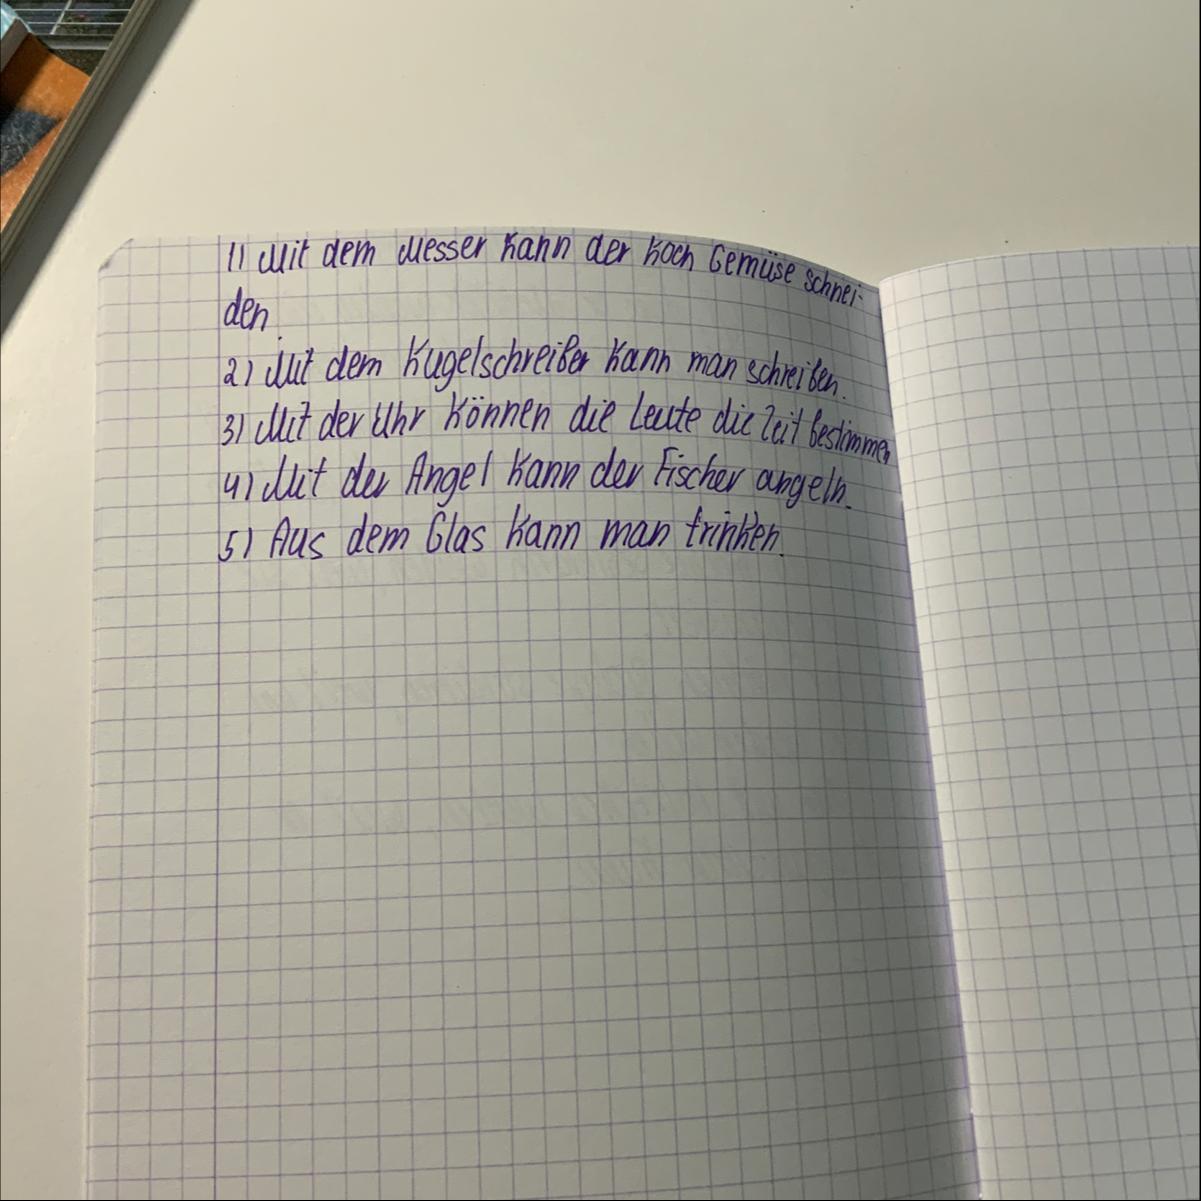 1) Mit dem Messer kann der Koch Gemüse schnei-
den
2) Mit dem Kugelschreiber kann man schreiben.
3) Mit der Uhr können die Leute die Zeit bestimmen
4) Mit der Angel kann der Fischer angeln.
5) Aus dem Glas kann man trinken.